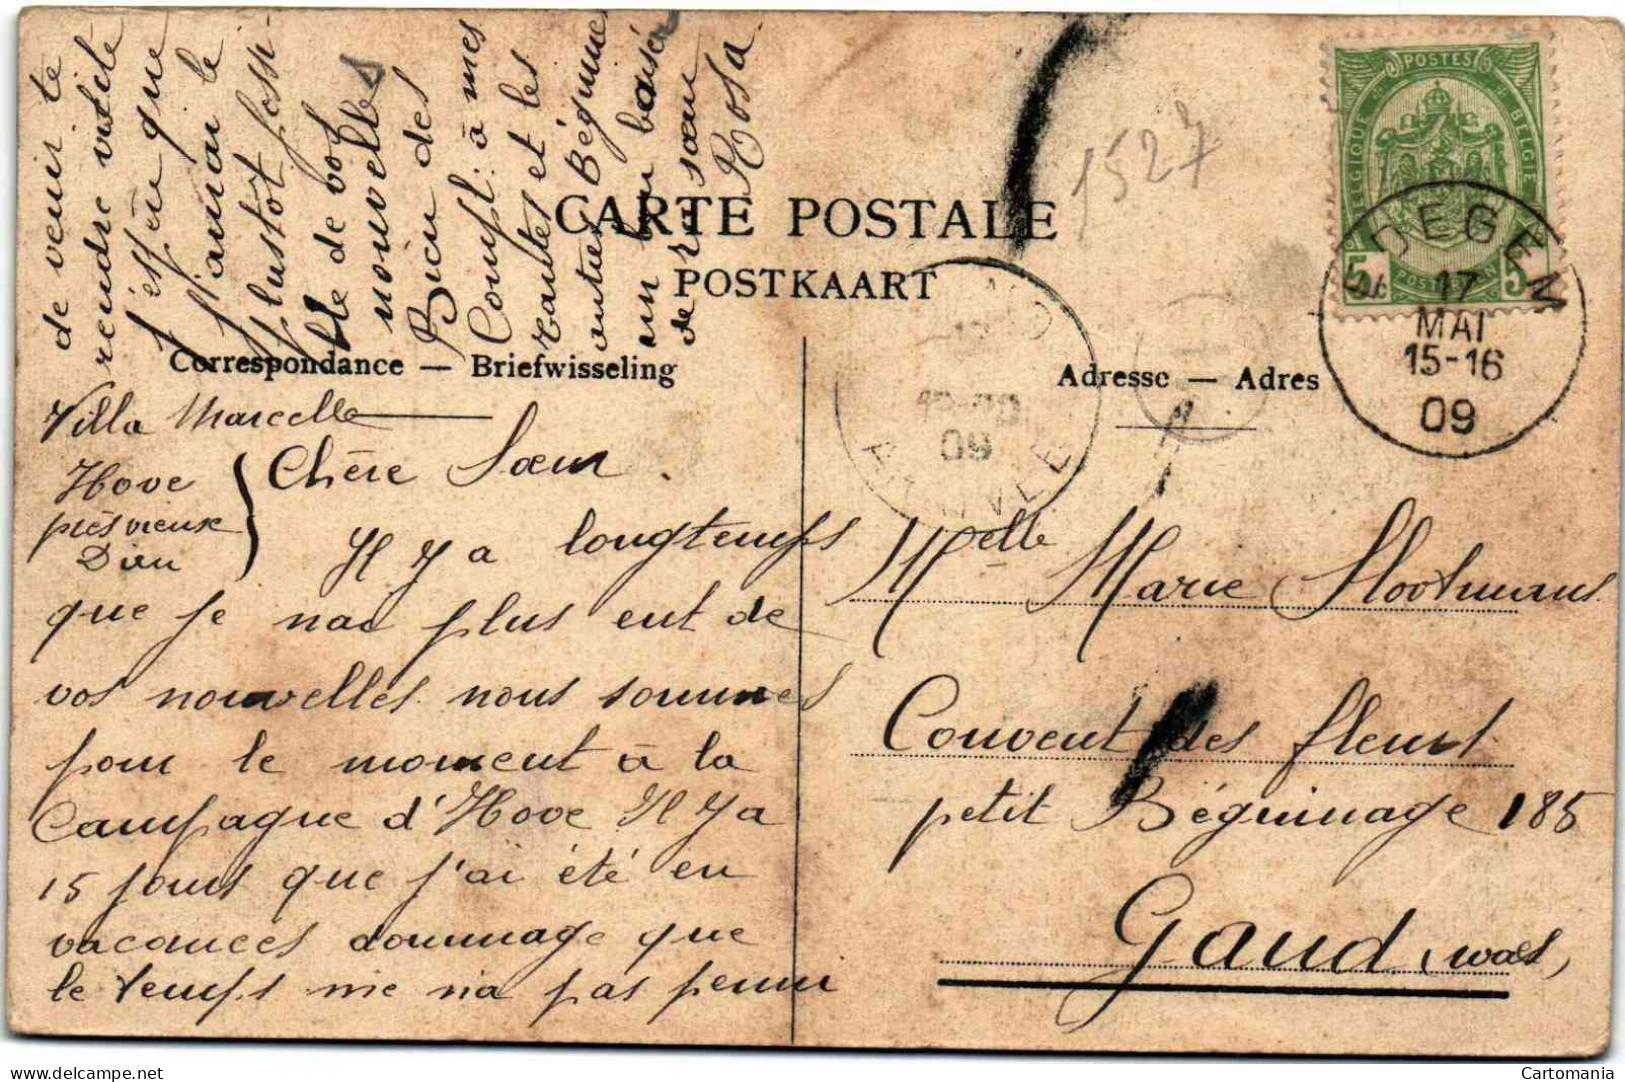 CARTE POSTALE
POSTKAART
Correspondance — Briefwisseling
Adresse — Adres
POSTES
BELGIQUE
BELGIE
5
POSTERIJEN
5
EDEGEM
17
MAI
15-16
09
09
1527
Villa Marcelle
Hove
près vieux
Dieu
Chère Sœur
Il y a longtemps
que je nai plus eut de
vos nouvelles nous sommes
pour le moment à la
Campagne d'Hove Il y a
15 jours que j'ai été en
vacances dommage que
le temps me na pas permi
de venir te
rendre visite
j'espère que
j'aurai le
plustot possi-
ble de vos
nouvelles
Bien des
Compl. à mes
tantes et les
autres Béguines
un bon baiser
de ta sœur
Rosa
Melle Marie Slootmans
Couvent des fleurs
petit Béguinage 185
Gand
Cartomania